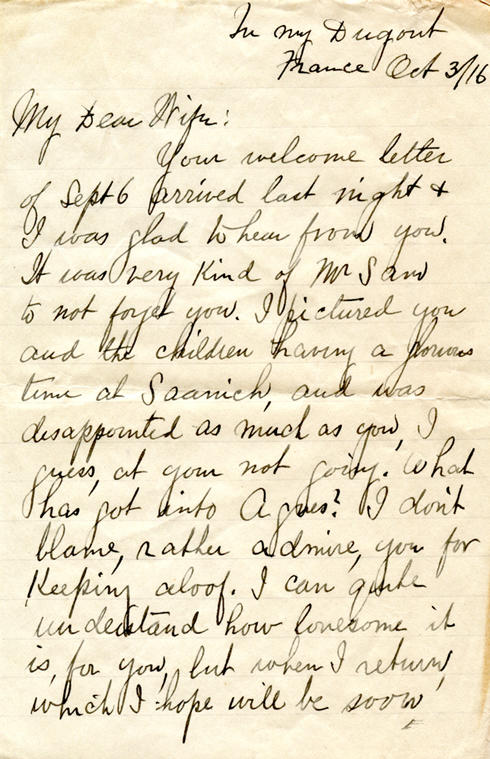 In my Dugout
France Oct 3/16
My Dear Wife:
Your welcome letter
of Sept 6 arrived last night &
I was glad to hear from you.
It was very kind of Mr Sam
to not forget you. I pictured you
and the children having a glorious
time at Saanich, and was
disappointed as much as you, I
guess, at your not going. What
has got into Agnes? I don't
blame, rather admire, you for
keeping aloof. I can quite
understand how lonesome it
is, for you, but when I return,
which I hope will be soon,